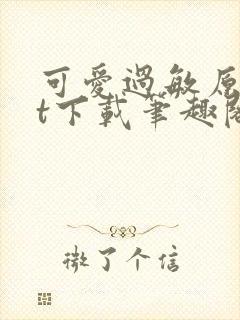 可愛過敏原
t下載筆趣閣
微了个信